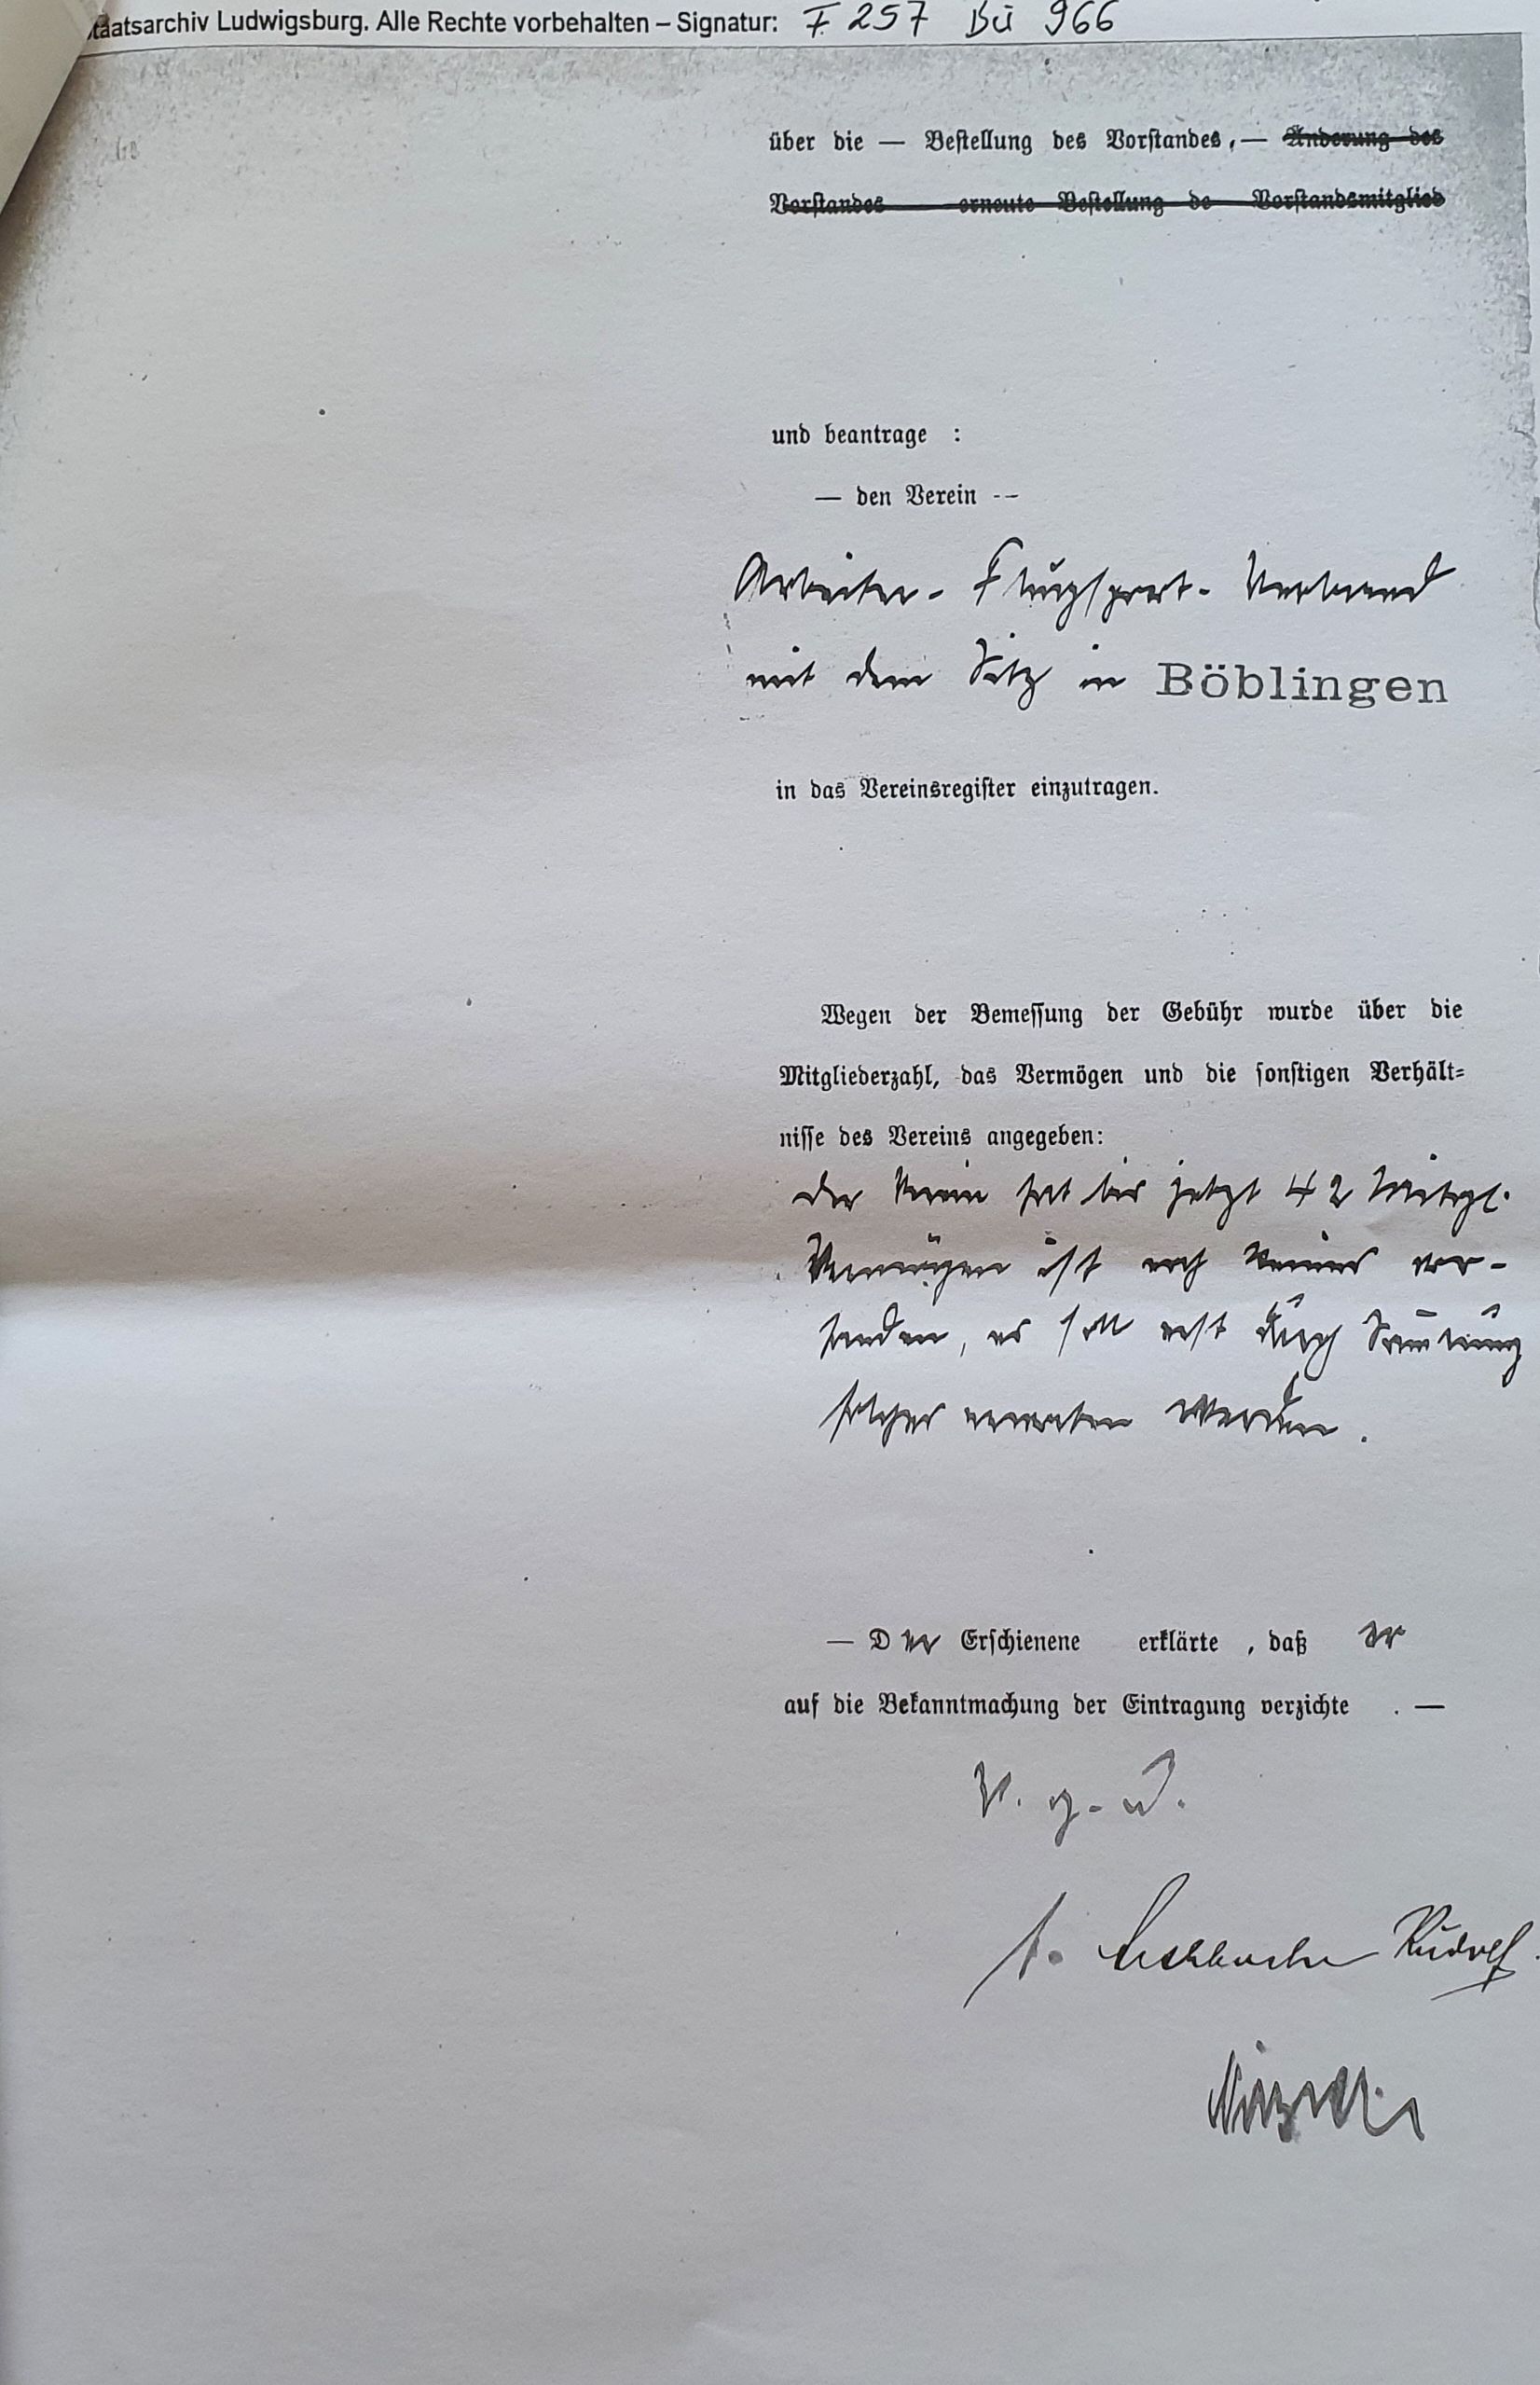 Staatsarchiv Ludwigsburg. Alle Rechte vorbehalten – Signatur: F 257 Bü 966
über die — Bestellung des Vorstandes, — Änderung des
Vorstandes — erneute Bestellung de Vorstandsmitglied
und beantrage :
— den Verein --
Arbeiter-Flugsport-Verband
mit dem Sitz in Böblingen
in das Vereinsregister einzutragen.
Wegen der Bemessung der Gebühr wurde über die
Mitgliederzahl, das Vermögen und die sonstigen Verhält=
nisse des Vereins angegeben:
Der Verein hat bis jetzt 42 Mitgl.
Vermögen ist noch keines vor-
handen, es soll erst durch Sam̄lung
solches erworben werden.
— Der Erschienene erklärte , daß er
auf die Bekanntmachung der Eintragung verzichte . —
V. g. U.
Rudolf.